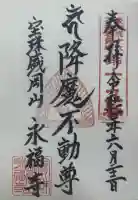 奉拝 令和 年六月三日
降魔不動尊
宝珠威岡山 永福寺